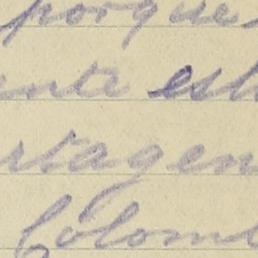 porque
nte est
rtagen
Colomb